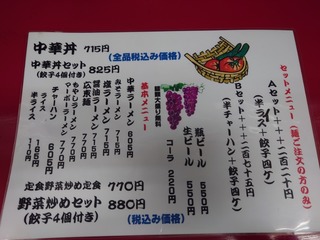 中華丼 715円
(全品税込み価格)
中華丼セット 825円
(餃子4個付き)
セットメニュー(麺ご注文の方のみ)
Aセット+
(半ライス+餃子四ケ)
Bセット+
(半チャーハン+餃子四ケ)
瓶ビール 550円
生ビール 550円
コーラ 220円
基本メニュー
麺類大盛り無料
中華ラーメン 605円
みそラーメン 715円
塩ラーメン 715円
醤油ラーメン 715円
広東麺
もやしラーメン 770円
マーボーラーメン 770円
チャーハン 605円
ライス 165円
半ライス 110円
定食野菜炒め定食 770円
野菜炒めセット 880円
(餃子4個付き) (税込み価格)